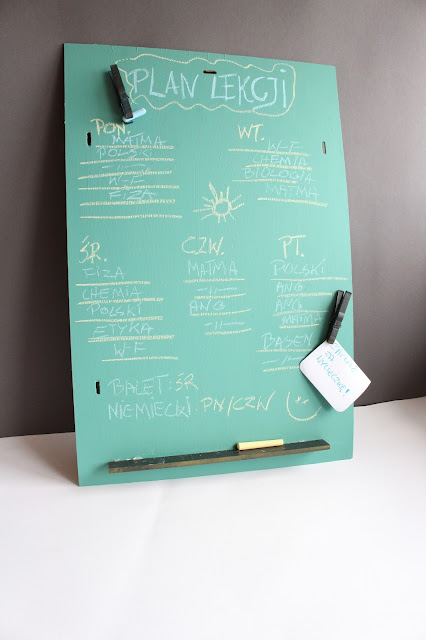 PLAN LEKCJI
PON.
MATMA
POLSKI
-||-
W-F
FIZA
WT.
W-F
CHEMIA
BIOLOGIA
MATMA
ŚR.
FIZA
CHEMIA
POLSKI
ETYKA
W-F
CZW.
MATMA
-||-
ANG
-||-
PT.
POLSKI
ANG
ANG
MATMA
BASEN
-||-
BALET: ŚR
NIEMIECKI: PN/CZW
NA